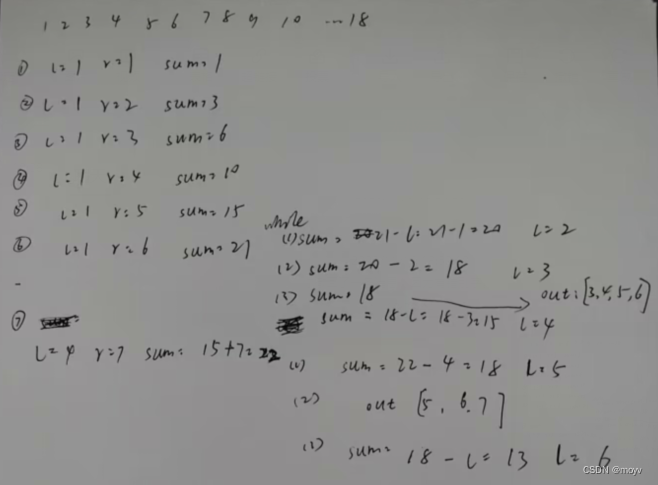 1 2 3 4 5 6 7 8 9 10 ... 18
① l=1 r=1 sum=1
② l=1 r=2 sum=3
③ l=1 r=3 sum=6
④ l=1 r=4 sum=10
⑤ l=1 r=5 sum=15
⑥ l=1 r=6 sum=21
while
(1) sum= 21-l=21-1=20 l=2
(2) sum=20-2=18 l=3
(3) sum=18 out:[3,4,5,6]
sum=18-l=18-3=15 l=4
⑦
l=4 r=7 sum=15+7=22
(1) sum=22-4=18 l=5
(2) out [5,6,7]
(3) sum=18-l=13 l=6
CSDN @moyv